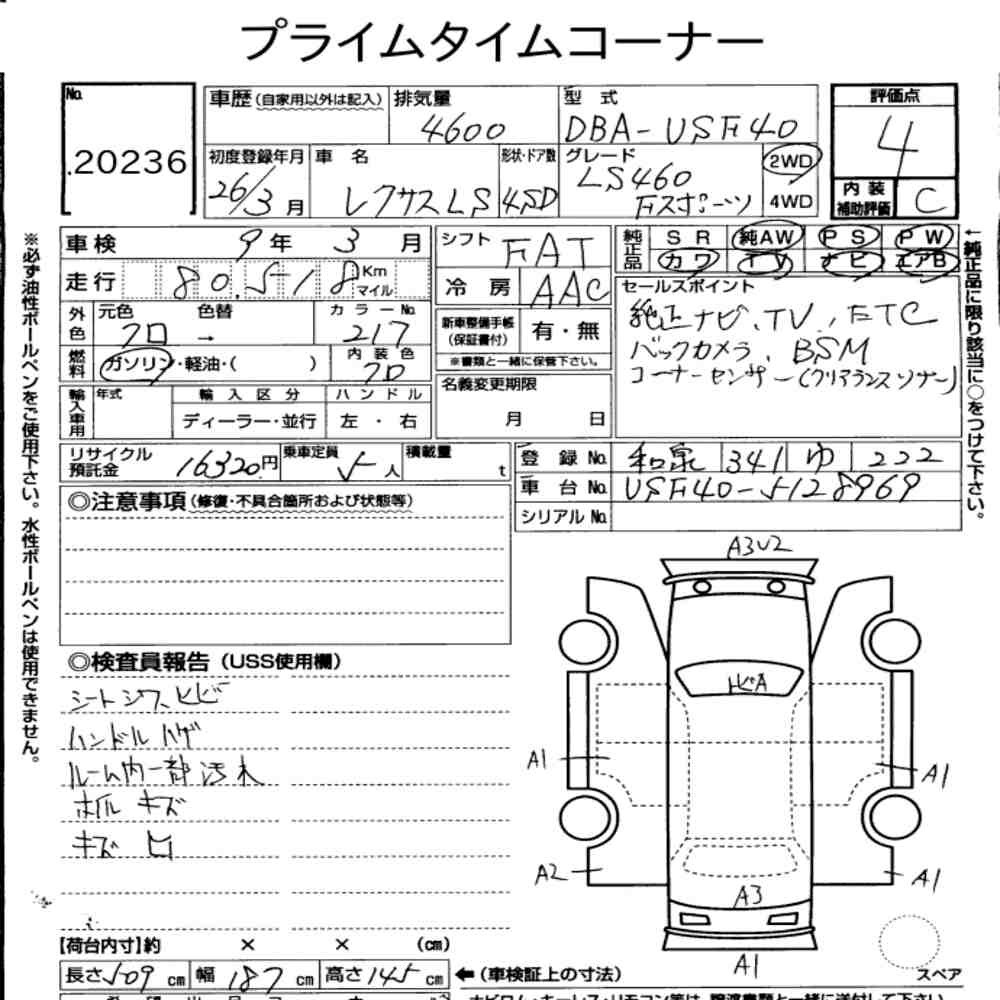 プライムタイムコーナー
No. 20236
車歴 (自家用以外は記入)
排気量 4600
型式 DBA-USF40
評価点 4
初度登録年月 26/3月
車名 レクサスLS
形状・ドア数 4SD
グレード LS460 Fスポーツ
2WD
4WD
内装補助評価 C
※必ず油性ボールペンをご使用下さい。水性ボールペンは使用できません。
車検 9年 3月
シフト FAT
純正品 SR 純AW PS PW
カワ TV ナビ エアB
走行 80,518 Km マイル
冷房 AAC
セールスポイント
純正ナビ、TV、ETC
バックカメラ、BSM
コーナーセンサー(クリアランスソナー)
←純正品に限り該当に○をつけて下さい。
外色 元色 クロ → 色替
カラーNo. 217
新車整備手帳(保証書付) 有・無
※書類と一緒に保管下さい。
燃料 ガソリン・軽油・( )
内装色 クロ
名義変更期限
月 日
輸入車用 年式 輸入区分 ハンドル
ディーラー・並行 左・右
リサイクル預託金 16320円
乗車定員 5人
積載量 t
登録No. 和泉 341 ゆ 222
車台No. USF40-5128969
シリアルNo.
◎注意事項(修復・不具合箇所および状態等)
◎検査員報告(USS使用欄)
シートシワ、ヒビ
ハンドルハゲ
ルーム内一部汚れ
ホイルキズ
キズ ヒ
A3U2
トビA
A1
A1
A2
A1
A3
A1
スペア
【荷台内寸】約 × × (cm)
長さ509cm 幅187cm 高さ145cm
←(車検証上の寸法)